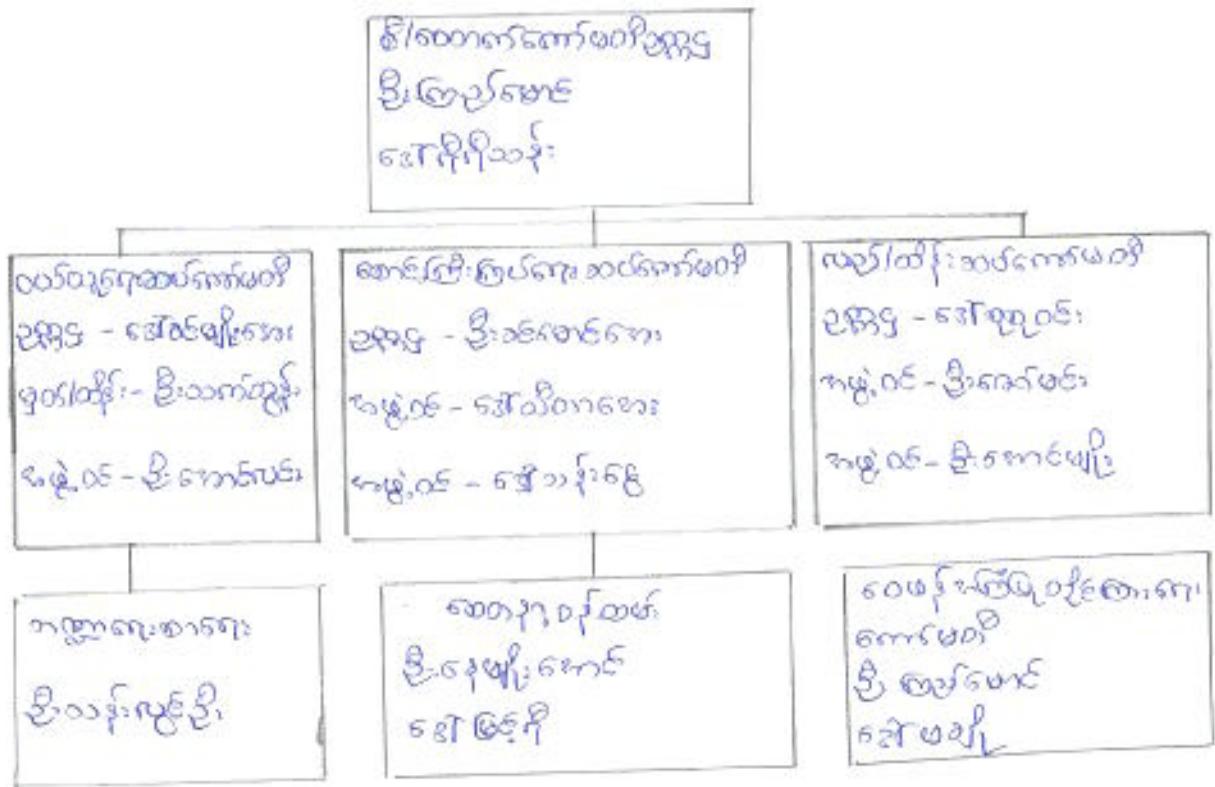 စီ/ဝေတက်ကော်မတီဥက္ကဋ္ဌ
ဦးကြည်မောင်
ဒေါ်ရီရီသန်း
ဝယ်ယူရေးဆပ်ကော်မတီ
ဥက္ကဋ္ဌ - ဒေါ်ခင်မျိုးအေး
မှတ်/ထိန်း - ဦးသက်ထွန်း
အဖွဲ့ဝင် - ဦးအောင်လင်း
ဆောင်ကြီးကြပ်ရေးဆပ်ကော်မတီ
ဥက္ကဋ္ဌ - ဦးခင်မောင်အေး
အဖွဲ့ဝင် - ဒေါ်သီတာအေး
အဖွဲ့ဝင် - ဒေါ်သန်းငွေ
လည်/ထိန်းဆပ်ကော်မတီ
ဥက္ကဋ္ဌ - ဒေါ်စုစုဝင်း
အဖွဲ့ဝင် - ဦးဇော်မင်း
အဖွဲ့ဝင် - ဦးအောင်မျိုး
ဘဏ္ဍာရေးစာရေး
ဦးသန်းလွင်ဦး
စေတနာ့ဝန်ထမ်း
ဦးနေမျိုးအောင်
ဒေါ်မြင့်ရီ
ဝေဖန်အကြံပြုတိုင်ကြားရေး
ကော်မတီ
ဦးကြည်မောင်
ဒေါ်မချို